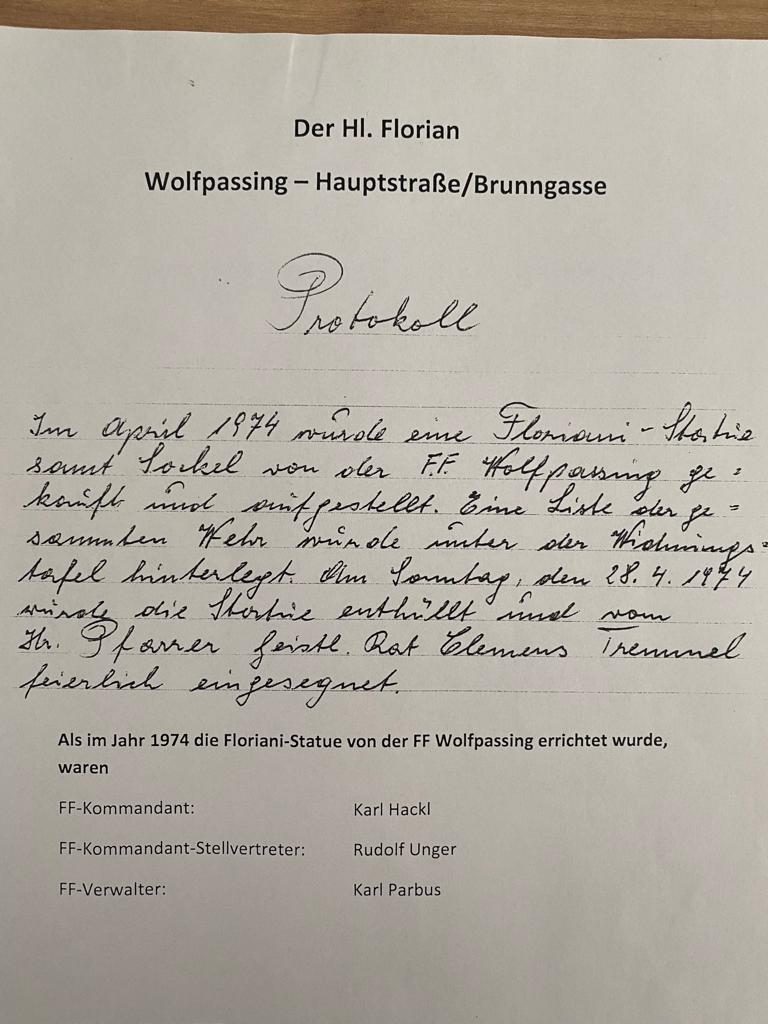 Der Hl. Florian
Wolfpassing – Hauptstraße/Brunngasse
Protokoll
Im April 1974 wurde eine Floriani-Statue
samt Sockel von der F.F. Wolfpassing ge=
kauft und aufgestellt. Eine Liste der ge=
sammten Wehr wurde unter der Widmungs=
tafel hinterlegt. Am Sonntag, den 28.4.1974
wurde die Statue enthüllt und vom
Hr. Pfarrer Geistl. Rat Clemens Tremmel
feierlich eingesegnet.
Als im Jahr 1974 die Floriani-Statue von der FF Wolfpassing errichtet wurde,
waren
FF-Kommandant: Karl Hackl
FF-Kommandant-Stellvertreter: Rudolf Unger
FF-Verwalter: Karl Parbus